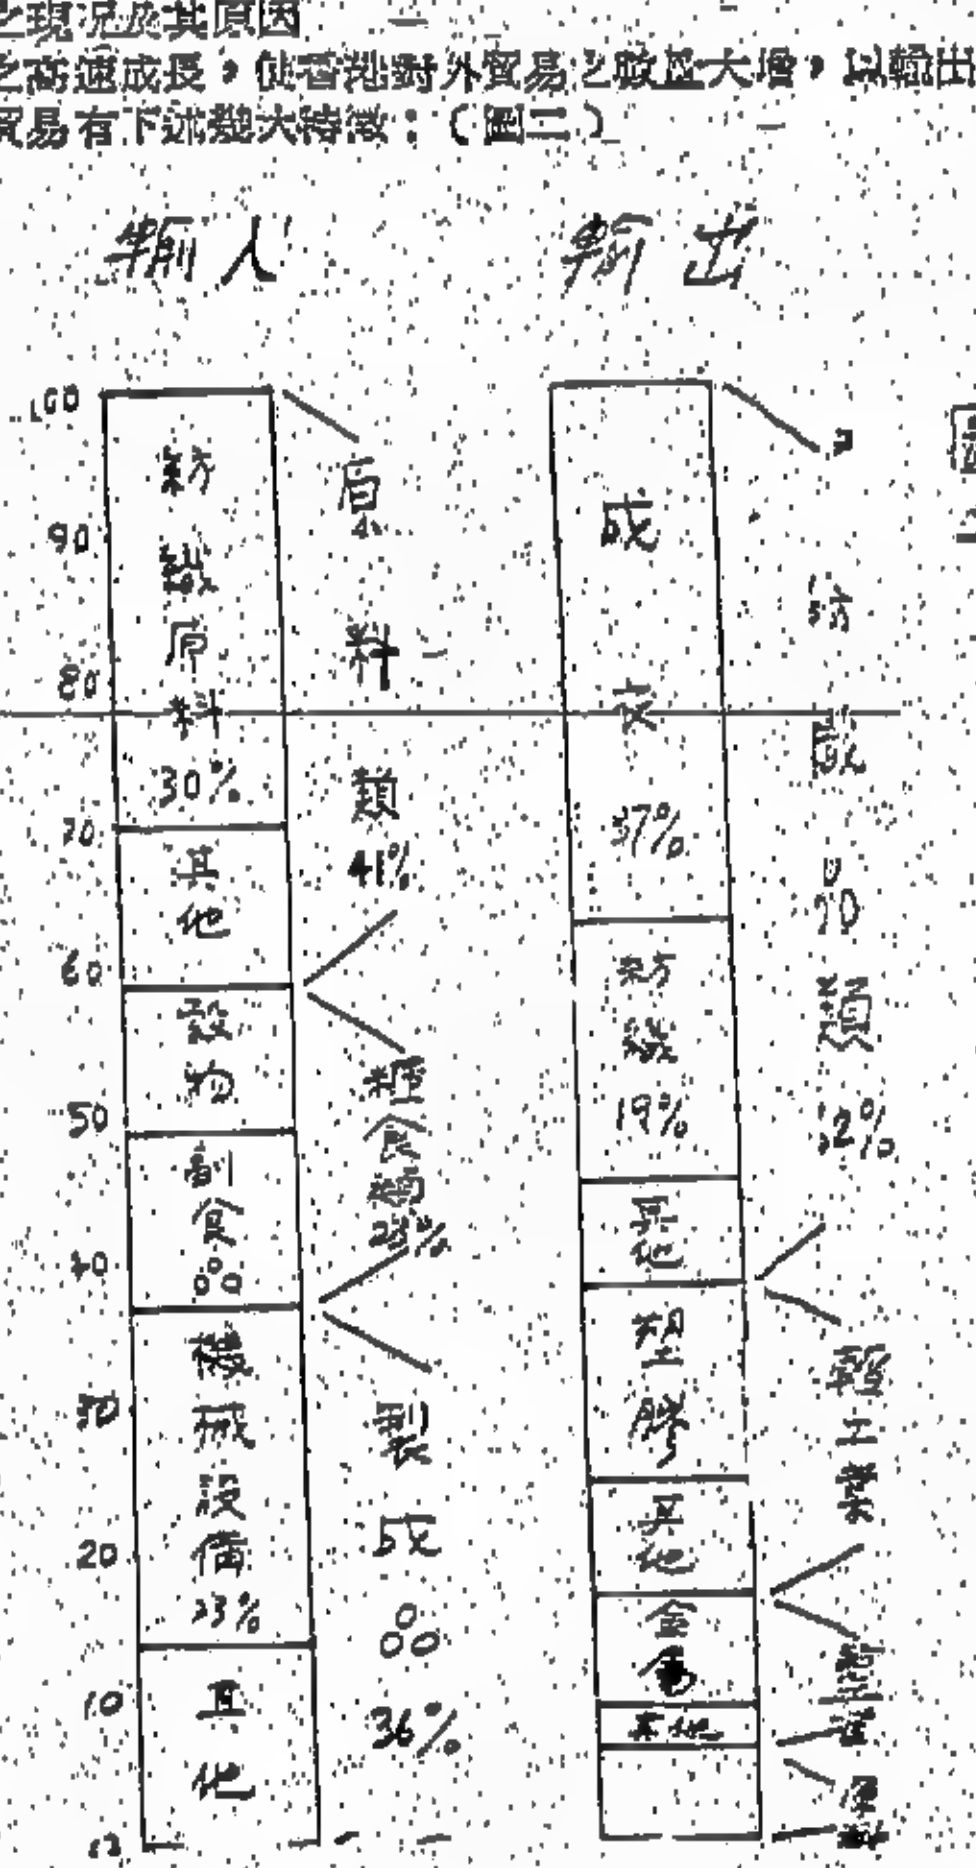 之現況及其原因
之高速成長，使香港對外貿易之數量大增，以輸出
貿易有下述幾大特徵：（圖二）
輸入
輸出
100
90
80
70
60
50
40
30
20
10
紡織原料
30%
其他
穀物
副食品
機械設備
23%
其他
原料類
41%
糧食類
製成品
36%
成衣
37%
紡織
19%
其他
塑膠
其他
金屬
其他
紡織品類
輕工業